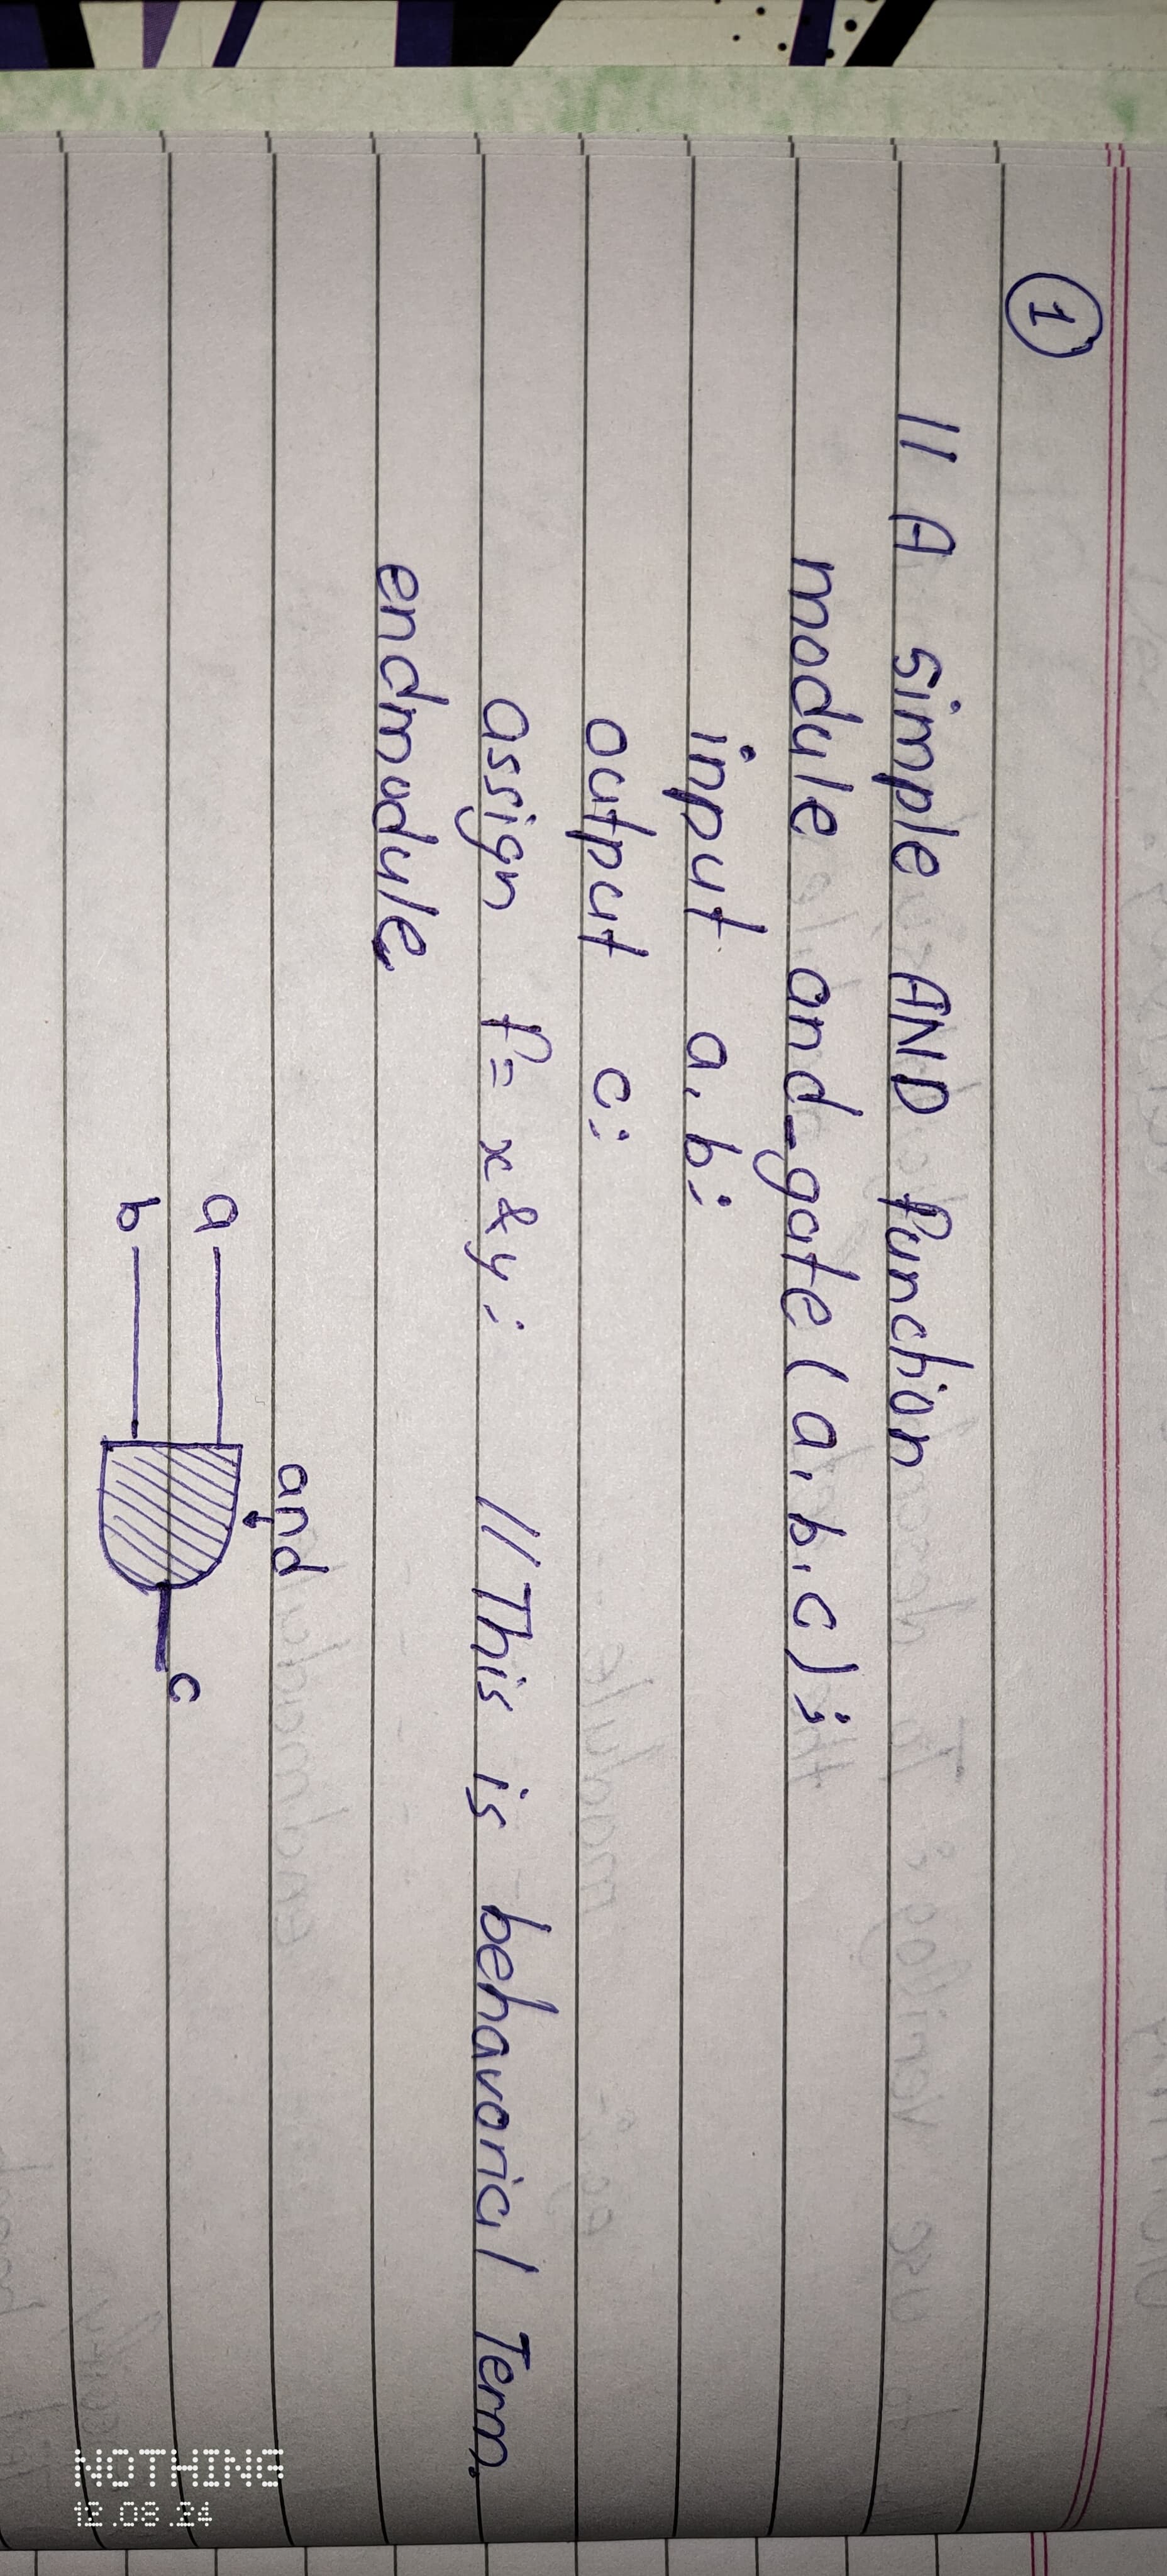 1
// A simple AND function
module and_gate (a, b, c);
input a, b;
output c;
assign f = x & y; // This is behavorial Term.
endmodule
and
a
b
c
NOTHING
12.08.24